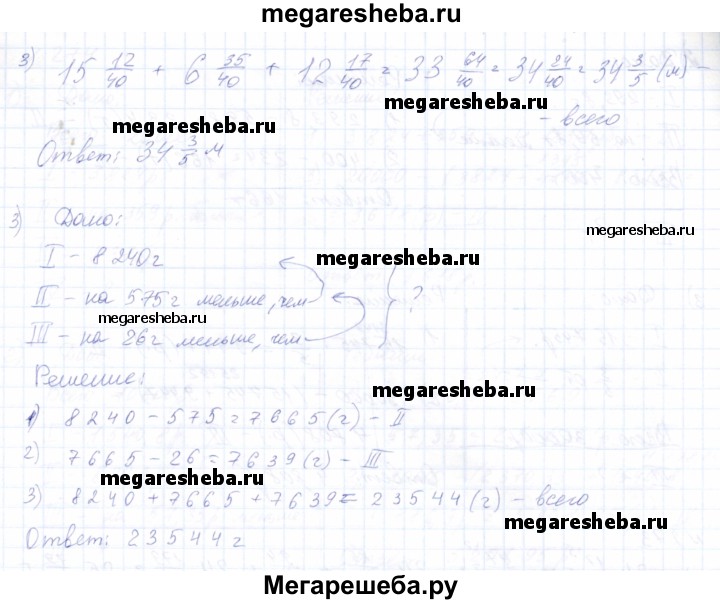 megaresheba.ru
3) 15 12/40 + 6 35/40 + 12 17/40 = 33 64/40 = 34 24/40 = 34 3/5 (м) -
megaresheba.ru
megaresheba.ru
- всего
Ответ: 34 3/5 м
3) Дано:
megaresheba.ru
I - 8 240 г
megaresheba.ru
II - на 575 г меньше, чем
?
megaresheba.ru
III - на 26 г меньше, чем
Решение:
megaresheba.ru
1) 8240 - 575 = 7665 (г) - II
2) 7665 - 26 = 7639 (г) - III
megaresheba.ru
3) 8240 + 7665 + 7639 = 23544 (г) - всего
megaresheba.ru
Ответ: 23544 г
Мегарешеба.ру